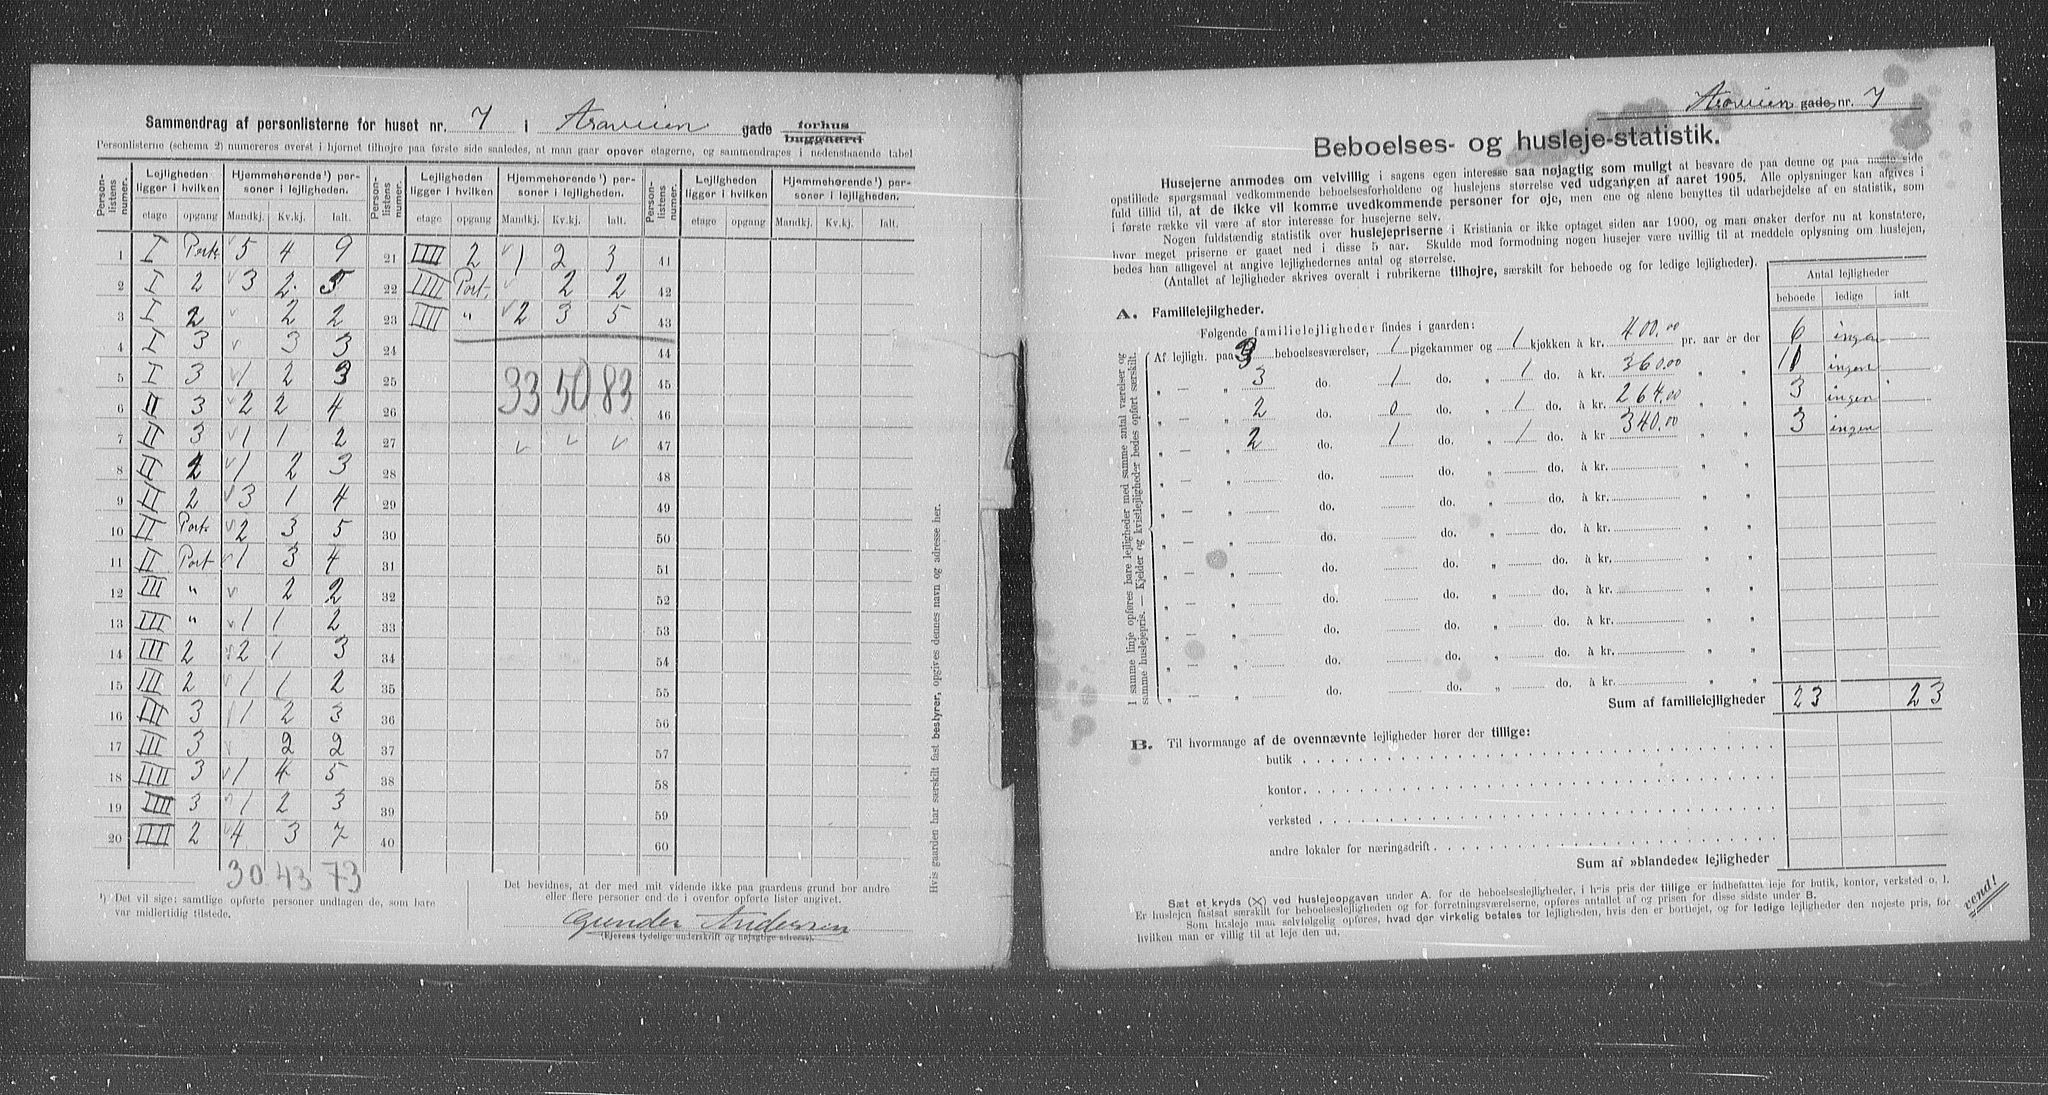 Sammendrag af personlisterne for huset nr. 7 i Asaveien gade forhus buggaard
Personlisterne (schema 2) numereres øverst i hjørnet tilhøjre paa første side saaledes, at man gaar opover etagerne, og sammendrages i nedenstaaende tabel
Person-listens numer. Lejligheden ligger i hvilken Hjemmehørende¹) personer i lejligheden. Person-listens numer. Lejligheden ligger i hvilken Hjemmehørende¹) personer i lejligheden. Person-listens numer. Lejligheden ligger i hvilken Hjemmehørende¹) personer i lejligheden.
etage opgang Mandkj. Kv.kj. Ialt. etage opgang Mandkj. Kv.kj. Ialt. etage opgang Mandkj. Kv.kj. Ialt.
1 I Port. 5 4 9 21 IIII 2 1 2 3 41
2 I 2 3 2 5 22 IIII Port. 2 2 42
3 I 2 2 2 23 IIII " 2 3 5 43
4 I 3 3 3 24 44
5 I 3 1 2 3 25 33 50 83 45
6 II 3 2 2 4 26 46
7 II 3 1 1 2 27 v v v 47
8 II 2 1 2 3 28 48
9 II 2 3 1 4 29 49
10 II Port. 2 3 5 30 50
11 II Port 1 3 4 31 51
12 III " 2 2 32 52
13 III " 1 1 2 33 53
14 III 2 2 1 3 34 54
15 III 2 1 1 2 35 55
16 III 3 1 2 3 36 56
17 III 3 2 2 37 57
18 IIII 3 1 4 5 38 58
19 IIII 3 1 2 3 39 59
20 IIII 2 4 3 7 40 60
30 43 73
¹) Det vil sige: samtlige opførte personer undtagen de, som bare
var midlertidig tilstede.
Det bevidnes, at der med mit vidende ikke paa gaardens grund bor andre
eller flere personer end de i ovenfor opførte lister angivet.
Gunder Andersen
(Ejerens tydelige underskrift og nøjagtige adresse).
Hvis gaarden har særskilt fast bestyrer, opgives dennes navn og adresse her.
Asaveien gade nr. 7
Beboelses- og husleje-statistik.
Husejerne anmodes om velvillig i sagens egen interesse saa nøjagtig som muligt at besvare de paa denne og paa næste side
opstillede spørgsmaal vedkommende beboelsesforholdene og huslejens størrelse ved udgangen af aaret 1905. Alle oplysninger kan afgives i
fuld tillid til, at de ikke vil komme uvedkommende personer for øje, men ene og alene benyttes til udarbejdelse af en statistik, som
i første række vil være af stor interesse for husejerne selv.
Nogen fuldstændig statistik over huslejepriserne i Kristiania er ikke optaget siden aar 1900, og man ønsker derfor nu at konstatere,
hvor meget priserne er gaaet ned i disse 5 aar. Skulde mod formodning nogen husejer være uvillig til at meddele oplysning om huslejen,
bedes han alligevel at angive lejlighedernes antal og størrelse.
(Antallet af lejligheder skrives overalt i rubrikerne tilhøjre, særskilt for beboede og for ledige lejligheder).
Antal lejligheder
beboede ledige ialt
A. Familielejligheder.
Følgende familielejligheder findes i gaarden:
Af lejligh. paa 3 beboelsesværelser, 1 pigekammer og 1 kjøkken à kr. 400.00 pr. aar er der 6 ingen
" — " 3 do. 1 do. " 1 do. à kr. 360.00 " " 11 ingen
" — " 2 do. 0 do. " 1 do. à kr. 264.00 " " 3 ingen
" — " 2 do. 1 do. " 1 do. à kr 340.00 " " 3 ingen
" — " do. do. " do. à kr. " "
" — " do. do. " do. à kr. " "
" — " do. do. " do. à kr. " "
" — " do. do. " do. à kr. " "
" — " do. do. " do. à kr. " "
" — " do. do. " do. à kr. " "
" — " do. do. " do. à kr. " "
" — " do. do. " do. à kr. " "
I samme linje opføres bare lejligheder med samme antal værelser og
samme huslejepris. — Kjelder og kvistlejligheder bedes opført særskilt.
Sum af familielejligheder 23 23
B. Til hvormange af de ovennævnte lejligheder hører der tillige:
butik
kontor
verksted
andre lokaler for næringsdrift
Sum af »blandede« lejligheder
Sæt et kryds (X) ved huslejeopgaven under A. for de beboelseslejligheder, i hvis pris der tillige er indbefattet leje for butik, kontor, verksted o. l.
Er huslejen fastsat særskilt for beboelseslejligheden og for forretningsværelserne, opføres antallet af og prisen for disse sidste under B.
Som husleje maa selvfølgelig opføres, hvad der virkelig betales for lejligheden, hvis den er bortlejet, og for ledige lejligheder den nøjeste pris, for
hvilken man er villig til at leje den ud.
vend!